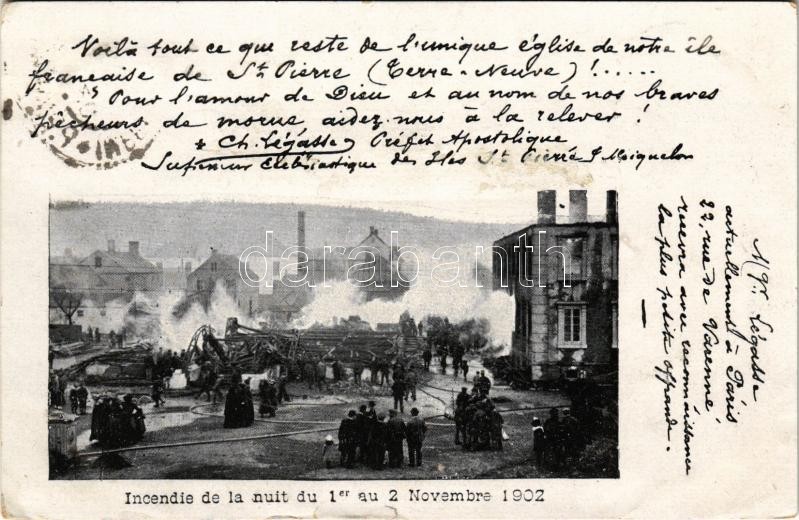 Voilà tout ce que reste de l'unique église de notre île
française de St Pierre (Terre-Neuve)!......
Pour l'amour de Dieu et au nom de nos braves
pêcheurs de morue aidez-nous à la relever!
+ Ch. Légasse Préfet Apostolique
Supérieur Ecclésiastique des Iles St Pierre & Miquelon
Mgr. Légasse
actuellement à Paris
22, rue de Varenne
recevra avec reconnaissance
la plus petite offrande.
darabanth.com
Incendie de la nuit du 1er au 2 Novembre 1902